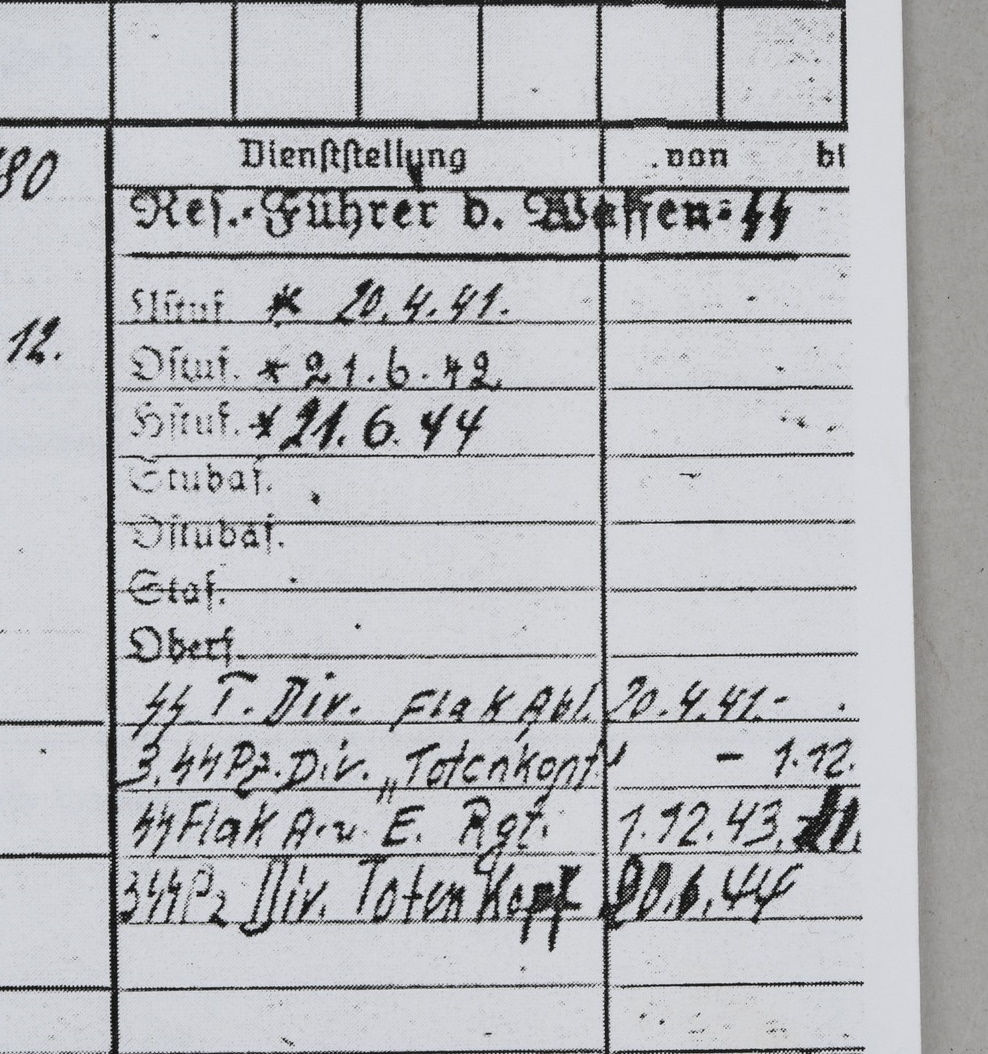 80
12.
Dienststellung von bi
Res.-Führer b. Waffen-SS
Ustuf. * 20.4.41.
Ostuf. * 21.6.42
Hstuf. * 21.6.44
Stubaf.
Ostubaf.
Staf.
Oberf.
SS T. Div. Flak Abl. 20.4.41.-
3. SS Pz. Div. „Totenkopf" - 1.12.
SS Flak A. u. E. Rgt. 1.12.43.
3 SS Pz Div. Totenkopf 20.6.44